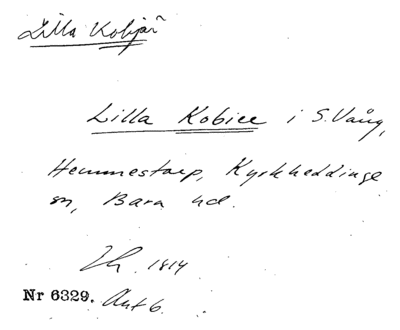 Lilla Kobjär
Lilla Kobier i S. Vång,
Hemmestorp, Kyrkheddinge
sn, Bara hd.
1814
Nr 6329. Avt 6.